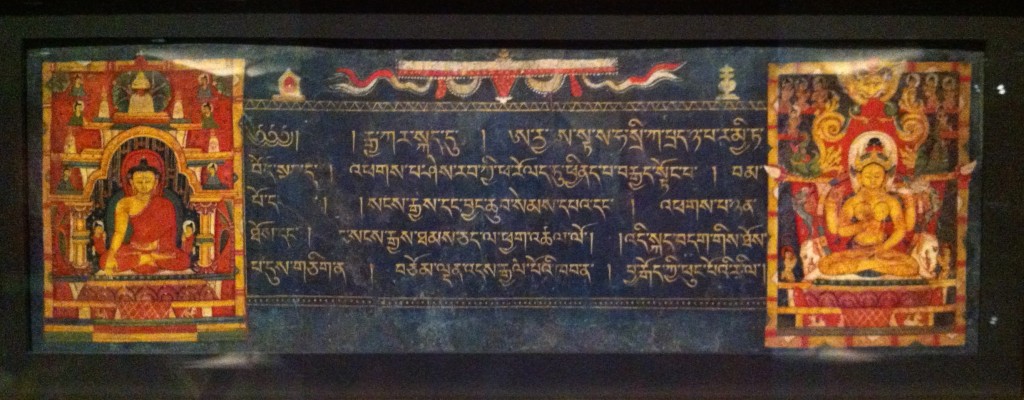 ༄༅༅། །རྒྱ་ཀར་སྐད་དུ །ཨ་རྱ་ ས་ཧ་སྲི་ཀ་པྲད་ཉ་པ་ར་མྱི་ཏ
བོད་སྐད་དུ། འཕགས་པ་ཤེས་རབ་ཀྱི་ཕ་རོལད་ཏུ་ཕྱིནད་པ་བརྒྱད་སྟོང་པ། བམ་
པོ་ །སངས་རྒྱས་དང་བྱང་ཆུབ་སེམས་དཔའ་དང་ ། འཕགས་པ་ཉན་
ཐོས་དང་ ། སངས་རྒྱས་ཐམས་ཅད་ལ་ཕྱག་འཚལ་ལོ། །འདི་སྐད་བདག་གིས་ཐོས་
པ་དུས་གཅིག་ན ། བཅོམ་ལྡན་འདས་རྒྱལ་པོའི་ཁབ་ན ། བྱ་རྒོད་ཀྱི་ཕུང་པོའི་རི་ལ།